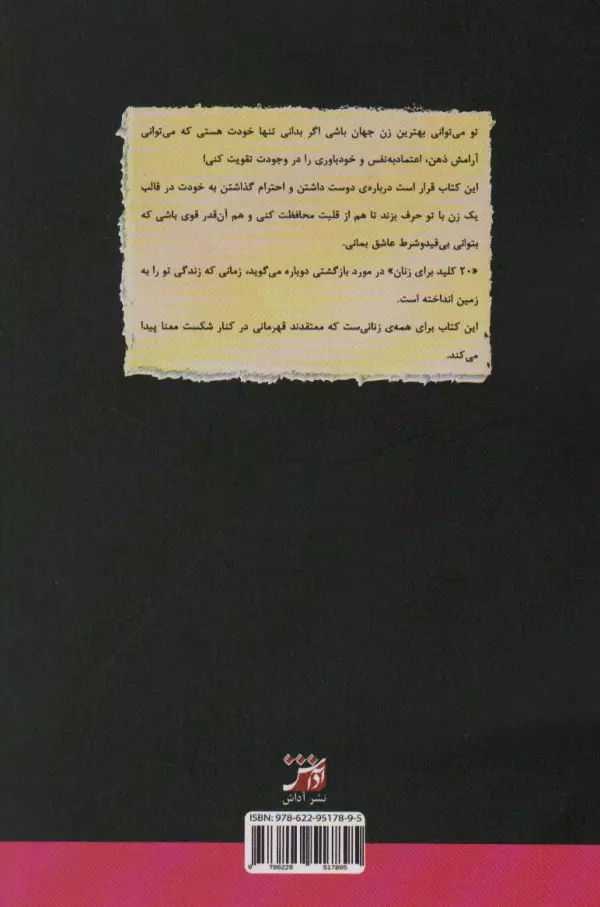 تو می‌توانی بهترین زن جهان باشی اگر بدانی تنها خودت هستی که می‌توانی
آرامش ذهن، اعتمادبه‌نفس و خودباوری را در وجودت تقویت کنی!
این کتاب قرار است درباره‌ی دوست داشتن و احترام گذاشتن به خودت در قالب
یک زن با تو حرف بزند تا هم از قلبت محافظت کنی و هم آن‌قدر قوی باشی که
بتوانی بی‌قیدوشرط عاشق بمانی.
«۲۰ کلید برای زنان» در مورد بازگشتی دوباره می‌گوید، زمانی که زندگی تو را به
زمین انداخته است.
این کتاب برای همه‌ی زنانی‌ست که معتقدند قهرمانی در کنار شکست معنا پیدا
می‌کند.
آداش
نشر آداش
ISBN: 978-622-95178-9-5
9 786229 517895